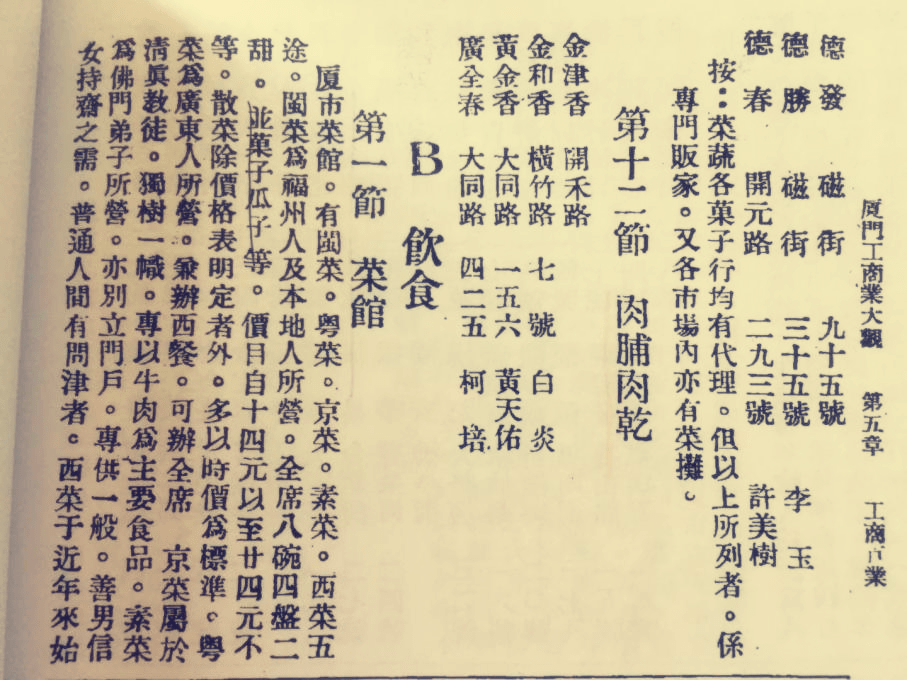 厦門工商業大觀 第五章 工商百業
德發 磁街 九十五號
德勝 磁街 三十五號 李玉
德春 開元路 二九三號 許美樹
按：菜蔬各菓子行均有代理。但以上所列者。係
專門販家。又各市場內亦有菜攤。
第十二節 肉脯肉乾
金津香 開禾路
金和香 橫竹路 七號 白炎
黃金香 大同路 一五六 黃天佑
廣全春 大同路 四二五 柯培
B 飲食
第一節 菜館
厦市菜館。有閩菜。粤菜。京菜。素菜。西菜五
途。閩菜爲福州人及本地人所營。全席八碗四盤二
甜。並菓子瓜子等。價目自十四元以至廿四元不
等。散菜除價格表明定者外。多以時價爲標準。粤
菜爲廣東人所營。兼辦西餐。可辦全席 京菜屬於
淸眞教徒。獨樹一幟。專以牛肉爲主要食品。素菜
爲佛門弟子所營。亦別立門戶。專供一般。善男信
女持齋之需。普通人間有問津者。西菜于近年來始